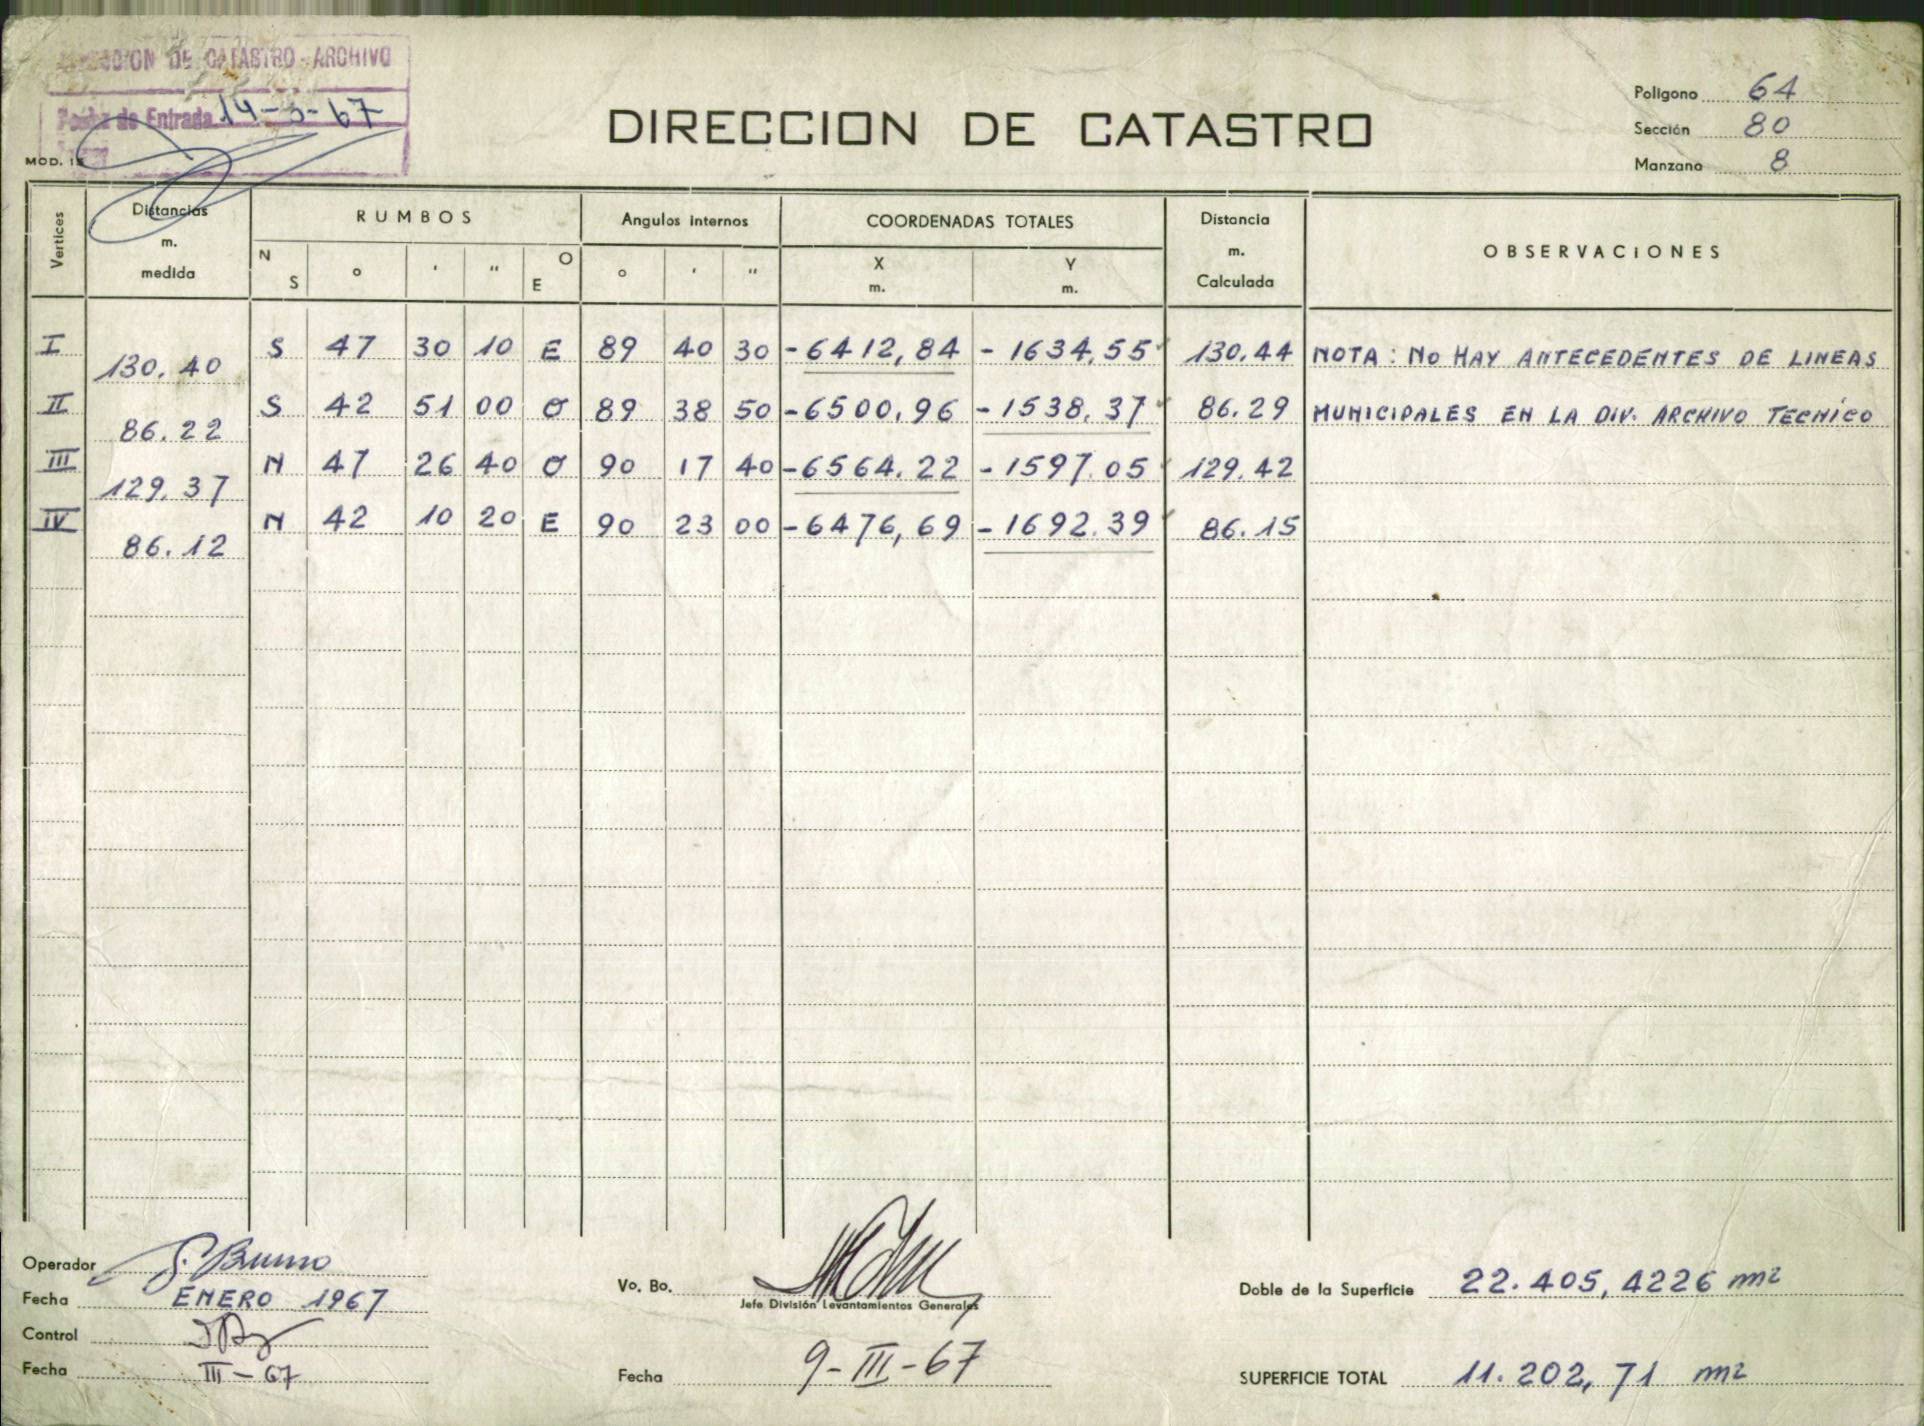 DIRECCION DE CATASTRO - ARCHIVO
Fecha de Entrada 14-3-67
MOD. 15
DIRECCION DE CATASTRO
Poligono 64
Sección 80
Manzana 8
Vertices
Distancias m. medida
RUMBOS
Angulos internos
COORDENADAS TOTALES
Distancia m. Calculada
OBSERVACIONES
N S ° ' " O E ° ' " X m. Y m.
I 130.40 S 47 30 10 E 89 40 30 -6412,84 -1634,55 130.44 NOTA: NO HAY ANTECEDENTES DE LINEAS
II 86.22 S 42 51 00 O 89 38 50 -6500,96 -1538,37 86.29 MUNICIPALES EN LA DIV. ARCHIVO TECNICO
III 129.37 N 47 26 40 O 90 17 40 -6564.22 -1597.05 129.42
IV 86.12 N 42 10 20 E 90 23 00 -6476,69 -1692.39 86.15
Operador G. Bruno
Fecha ENERO 1967
Control
Fecha III-67
Vo. Bo.
Jefe División Levantamientos Generales
Fecha 9-III-67
Doble de la Superficie 22.405,4226 m2
SUPERFICIE TOTAL 11.202,71 m2